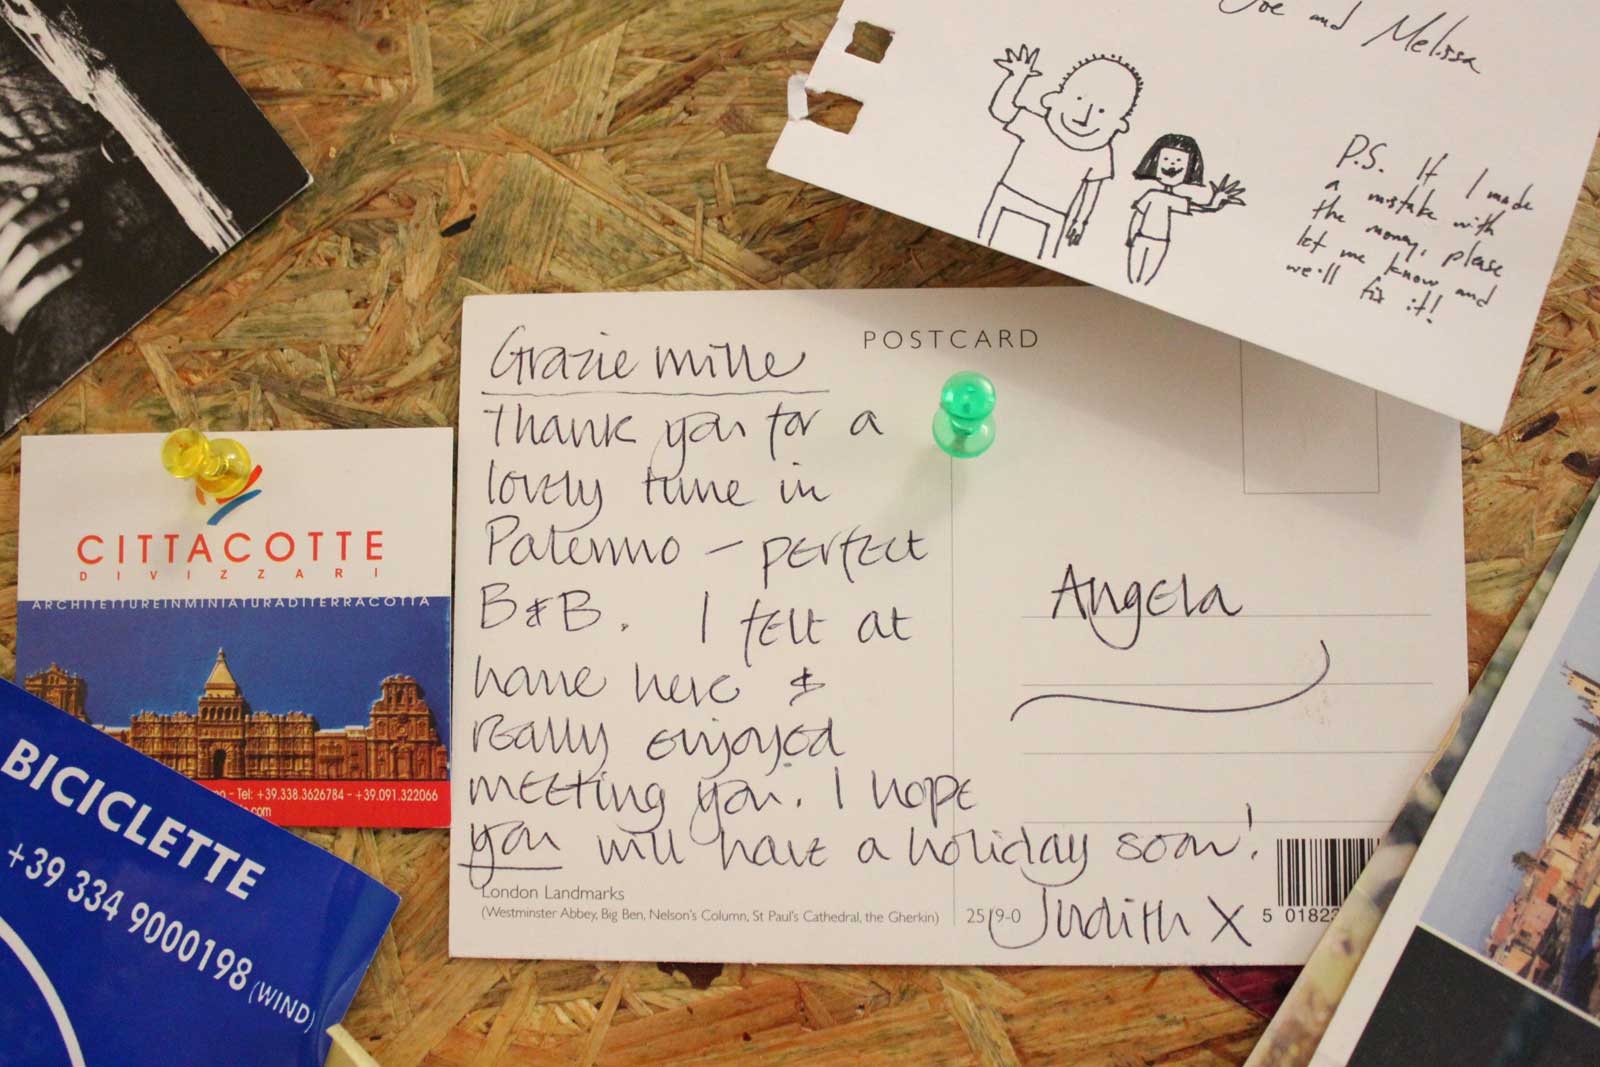 Joe and Melissa
P.S. If I made
a mistake with
the money, please
let me know and
we'll fix it!
POSTCARD
Grazie mille
Thank you for a
lovely time in
Palermo – perfect
B&B. I felt at
home here &
really enjoyed
meeting you. I hope
you will have a holiday soon!
Judith X
Angela
London Landmarks
(Westminster Abbey, Big Ben, Nelson's Column, St Paul's Cathedral, the Gherkin)
25/9-0
5 01823
CITTACOTTE
DIVIZZARI
ARCHITETTUREINMINIATURADITERRACOTTA
- Tel: +39.338.3626784 - +39.091.322066
.com
BICICLETTE
+39 334 9000198 (WIND)